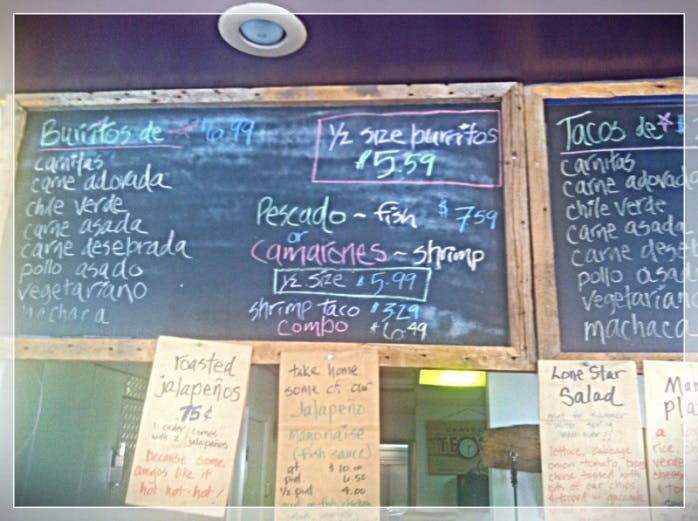 Burritos de $6.99
carnitas
carne adovada
chile verde
carne asada
carne desebrada
pollo asado
vegetariano
machara
1/2 size burritos
$5.59
Pescado ~ fish $7.59
or
Camarones ~ shrimp
1/2 size $5.99
shrimp taco $3.29
combo $6.49
Tacos de
carnitas
carne adovada
chile verde
carne asada
carne dese
pollo asa
vegetarian
machaca
roasted
jalapeños
75¢
1 order comes
with 2 jalapeños
because some
amigos like it
hot-hot-hot!
take home
some of our
Jalapeño
Manonaise
(fish sauce)
qt $10.00
pint 6.50
1/2 pint 4.00
Lone Star
Salad
lettuce, cabbage
onion tomato,
cheese topped with
bits of our chips
Ma
pla
a
rice
verde
cheese